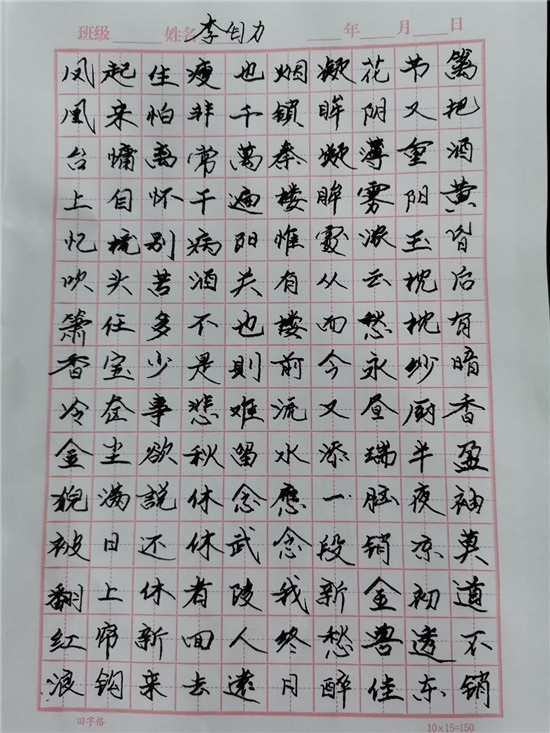 班级 姓名 李自力 年 月 日
凤凰台上忆吹箫香冷金猊被翻红浪
起来慵自梳头任宝奁尘满日上帘钩
住怕离怀别苦多少事欲說还休新来
瘦非常干病酒不是悲秋休休者回去
也千萬遍阳关也則难留念武陵人遠
烟锁秦楼惟有楼前流水應念我终月
凝眸凝眸處从而今又添一段新愁醉
花阴薄雾浓云愁永昼瑞脑销金兽佳
节又重阳玉枕枕纱厨半夜凉初透东
篱把酒黄昏后有暗香盈袖莫道不销
田字格 10×15=150